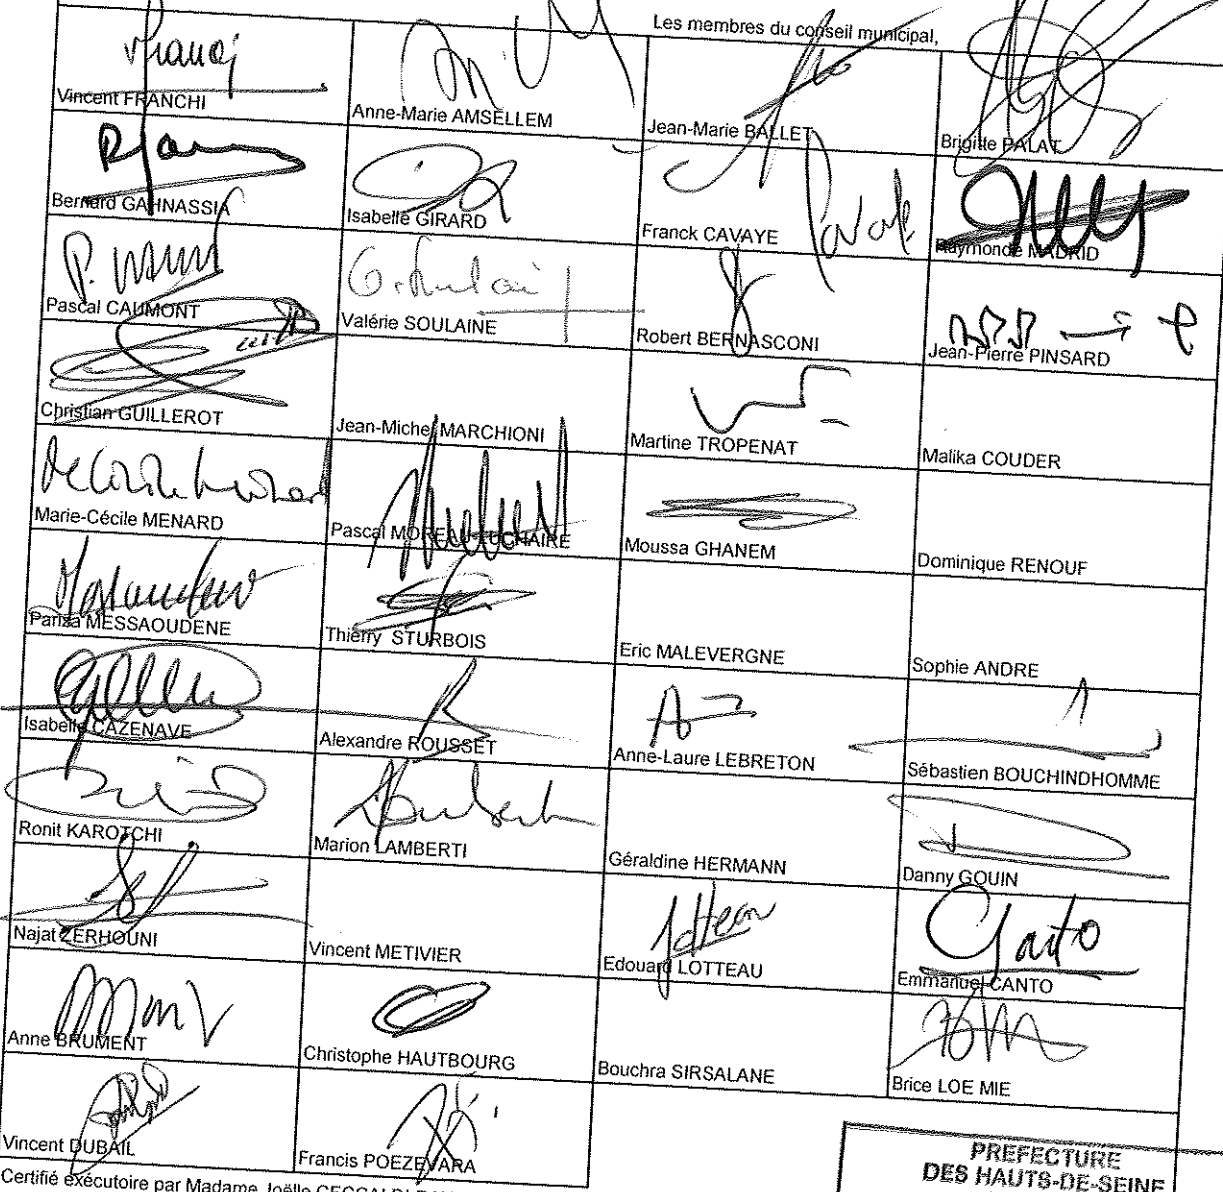 Les membres du conseil municipal,
Vincent FRANCHI
Anne-Marie AMSELLEM
Jean-Marie BALLET
Brigitte PALAT
Bernard GAHNASSIA
Isabelle GIRARD
Franck CAVAYE
Raymonde MADRID
Pascal CAUMONT
Valérie SOULAINE
Robert BERNASCONI
Jean-Pierre PINSARD
Christian GUILLEROT
Jean-Michel MARCHIONI
Martine TROPENAT
Malika COUDER
Marie-Cécile MENARD
Pascal MOREAU-LUCHAIRE
Moussa GHANEM
Dominique RENOUF
Pariza MESSAOUDENE
Thierry STURBOIS
Eric MALEVERGNE
Sophie ANDRE
Isabelle CAZENAVE
Alexandre ROUSSET
Anne-Laure LEBRETON
Sébastien BOUCHINDHOMME
Ronit KAROTCHI
Marion LAMBERTI
Géraldine HERMANN
Danny GOUIN
Najat ZERHOUNI
Vincent METIVIER
Edouard LOTTEAU
Emmanuel CANTO
Anne BRUMENT
Christophe HAUTBOURG
Bouchra SIRSALANE
Brice LOE MIE
Vincent DUBAIL
Francis POEZEVARA
Certifié exécutoire par Madame Joëlle
PREFECTURE
DES HAUTS-DE-SEINE